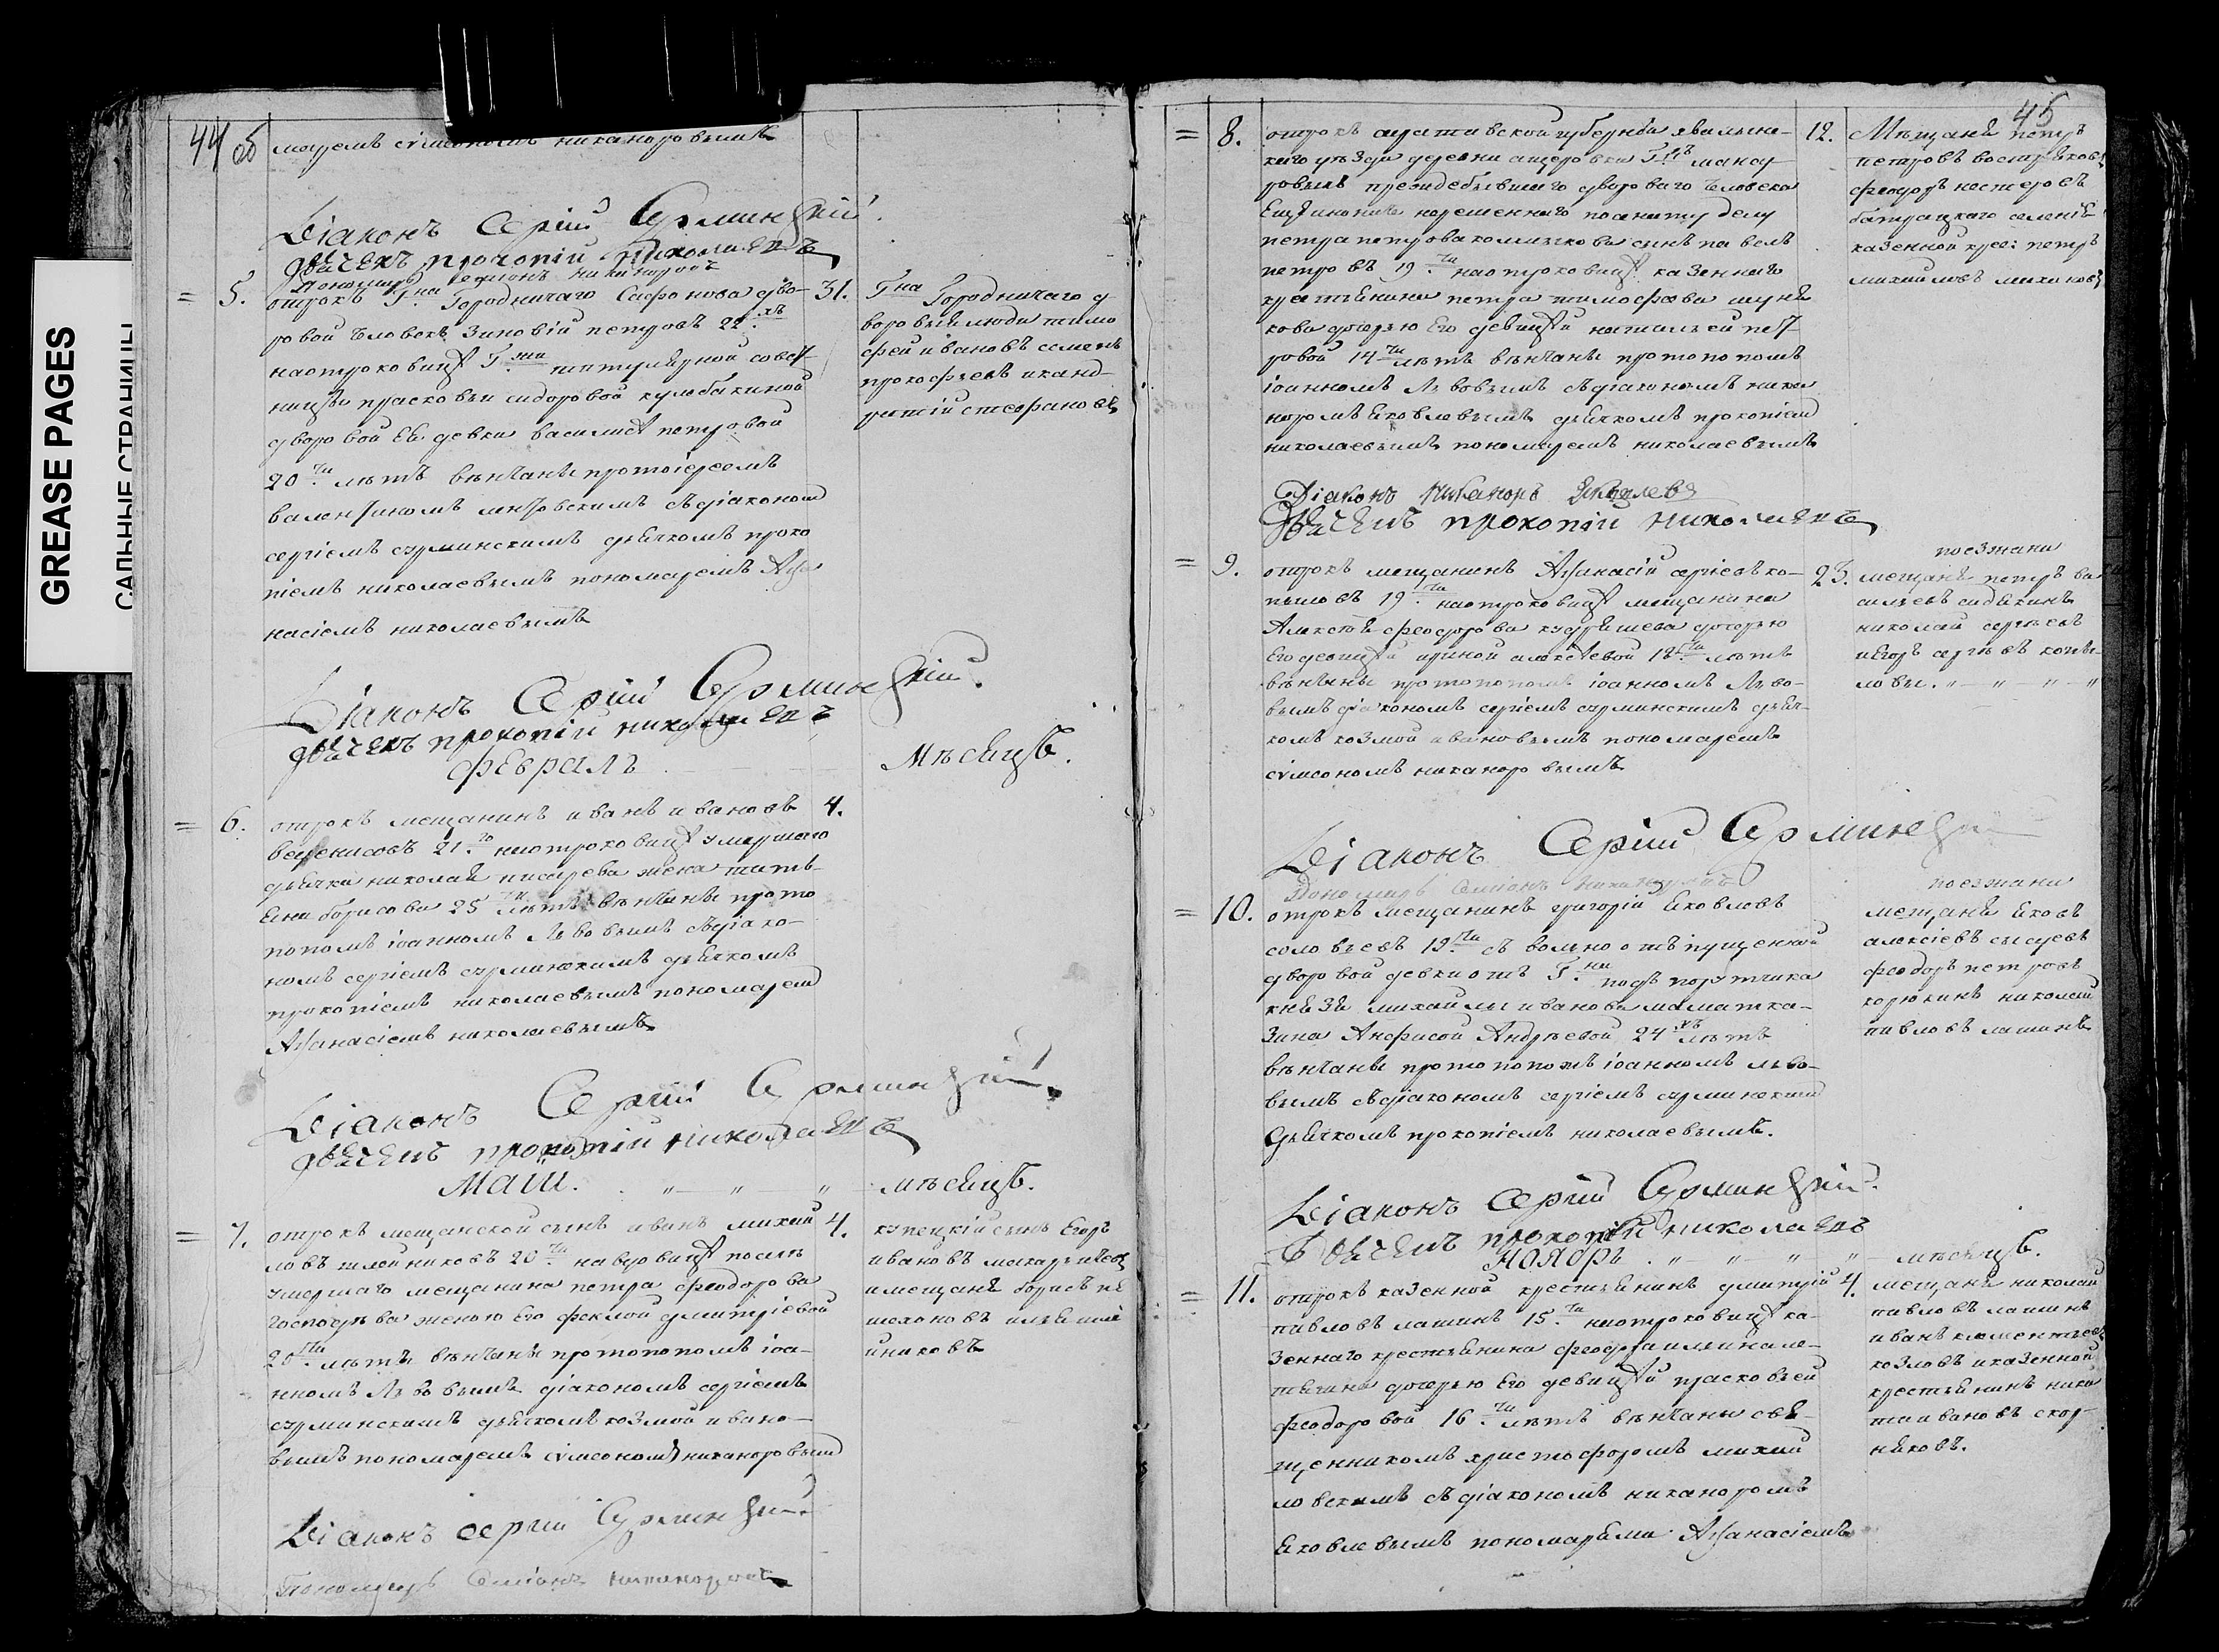 GREASE PAGES
САЛЬНЫЕ СТРАНИЦЫ
44 об
моремъ сѵмеономъ никаноровымъ
Діаконъ Сергій Сурминскій.
Дьячекъ прокопій николаевъ
Пономарь Семионъ никаноровъ
= 5. отрокъ Г.на Городничаго Сафонова дво- 31.
ровой человекъ Зиновій петровъ 22.хъ
наотроковицѣ Г.жи титулярной совет
ницы прасковьи сидоровой кулобакиной
дворовой Ея девки василисѣ петровой
20.ти лѣтъ вѣнчаны протоіереомъ
сергіемъ сурминскимъ дьячкомъ проко
піемъ николаевымъ пономаремъ Аѳа
насіемъ николаевымъ
Г.на Городничаго д
воровыя люди тимо
фей ивановъ семенъ
прокофьевъ иканд-
ратій стефановъ
Діаконъ Сергій Сурминскій.
дьячекъ прокопій николаевъ
февраль мѣсяцъ.
= 6. отрокъ мещанинъ иванъ ивановъ 4.
21.го наотроковицѣ умершаго
дьячка николая писарева жена тать-
Ѣна борисова 25.ти лѣтъ вѣнчаны прото
попомъ іоанномъ Львовымъ сдіако-
номъ сергіемъ сурминскимъ дьячкомъ
прокопіемъ николаевымъ пономарем
Аѳанасіемъ николаевымъ
Діаконъ Сергій Сурминскій.
дьячекъ прокопій николаевъ
Маій. мѣсяцъ.
= 7. отрокъ мещанской сынъ иванъ михай 4.
ловъ 20.ти навдовицѣ послѣ
умершаго мещанина петра феодорова
женою Его феклой дмитріевой
20.ти лѣтъ вѣнчаны протопопомъ іоа-
нномъ Львовымъ діакономъ сергіемъ
сурминскимъ дьячкомъ козмой ивано-
вымъ пономаремъ сѵмеономъ никаноровым
купецкій сынъ Егоръ
ивановъ
имещаня борисъ
Діаконъ сергій Сурминскій.
Пономарь Семіонъ никаноровъ
45
= 8. отрокъ саратовской губернии хвалынс- 12.
каго уѣзда деревни
преждебывшаго двороваго человека
петра петрова сынъ павелъ
петровъ 19.ти наотроковицѣ казеннаго
крестьянина петра тимофеева
кова дочерью Его девицѣй натальей пет
ровой 14.ти лѣтъ вѣнчаны протопопомъ
іоанномъ Львовымъ сдіакономъ ника
норомъ яковлевымъ дьячкомъ прокопіем
николаевымъ пономаремъ николаевымъ
Мѣщаня петръ
петровъ востряковъ
феодоръ нестеровъ
казенной крес: петръ
михайловъ
Діаконъ Никаноръ Яковлевъ
Дьячекъ прокопій николаевъ
= 9. отрокъ мещанинъ Аѳанасій сергіевъ ко- 23.
пыловъ 19.ти наотроковицѣ мещанина
Алексѣя феодорова кудряшева дочерью
Его девицѣй ириной алексѣевой 18.ти лѣтъ
вѣнчаны протопопомъ іоанномъ Льво-
вымъ діакономъ сергіемъ сурминскимъ дьяч-
комъ козмой ивановымъ пономаремъ
сѵмеономъ никаноровымъ
поезжани
мещаня петръ ва
сильевъ сидякинъ
николай сергѣевъ
иЕгоръ сергѣевъ копы-
ловы.
Діаконъ Сергій Сурминскій
Пономарь Семіонъ Никаноровъ
= 10. отрокъ мещанинъ григорій яковлевъ
соловьевъ 19.ти съ вольноотпущенной
дворовой девки отъ Г.на подпорутчика
князя михайлы иванова маматка-
зина Анфисой Андрѣевой 24.хъ лѣтъ
вѣнчаны протопопомъ іоанномъ льво-
вымъ сдіакономъ сергіемъ сурминским
Дьячкомъ прокопіемъ николаевымъ.
поезжани
мещаня яковъ
алексіевъ сысуевъ
феодоръ петровъ
корюкинъ николай
павловъ лашинъ
Діаконъ Сергій Сурминскій.
Дьячекъ прокопій николаевъ
ноябрь. мѣсяцъ.
= 11. отрокъ казенной крестьянинъ дмитрій 4.
павловъ лашинъ 15.ти наотроковицѣ ка-
зеннаго крестьянина феодора
дочерью Его девицѣй прасковьей
феодоровой 16.ти лѣтъ вѣнчаны свя-
щенникомъ христофоромъ михай
ловскимъ сдіакономъ никаноромъ
яковлевымъ пономарями Аѳанасіемъ
мещаня николай
павловъ лашинъ
иванъ климентьевъ
козловъ иказенной
крестьянинъ ники
та ивановъ скор-
няковъ.